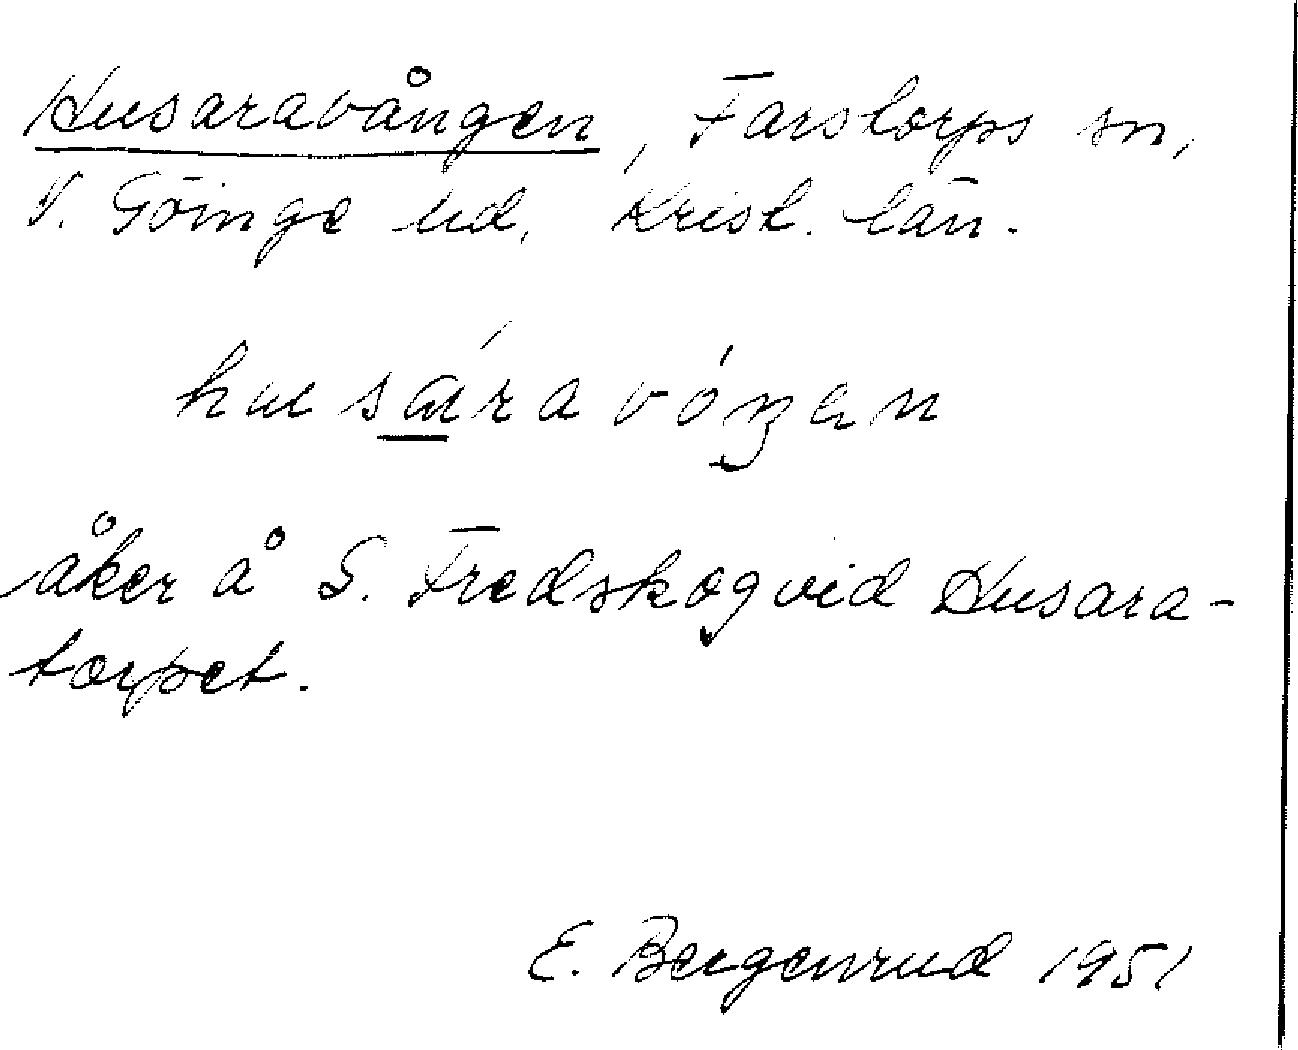 Husaravången, Farstorps sn,
V. Göinge hd, Krist. län.
husáravóŋen
åker å S. Fredskog vid Husara-
torpet.
E. Bergenrud 1951